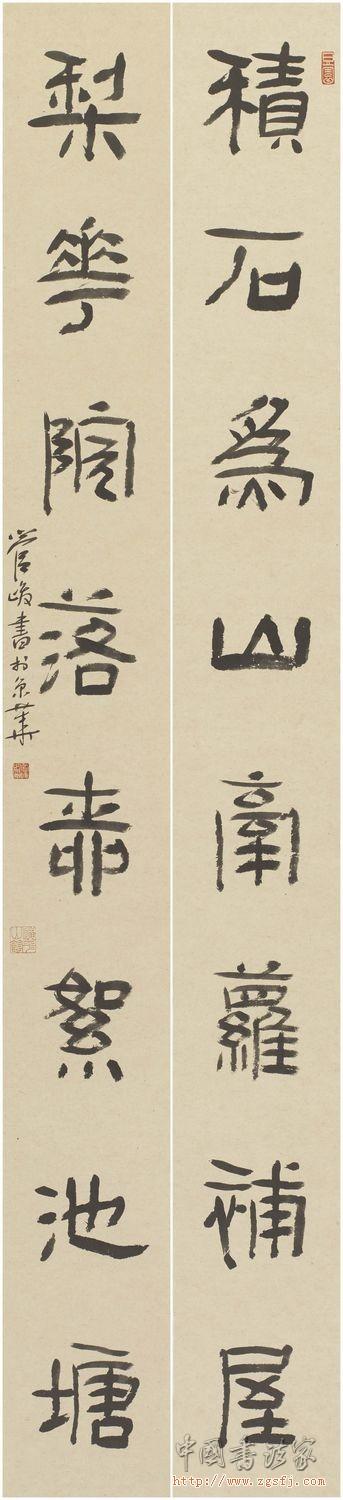 積石爲山牽蘿補屋
梨華院落柳絮池塘
管峻書於京華
中國書法家
http://www.zgsfj.com